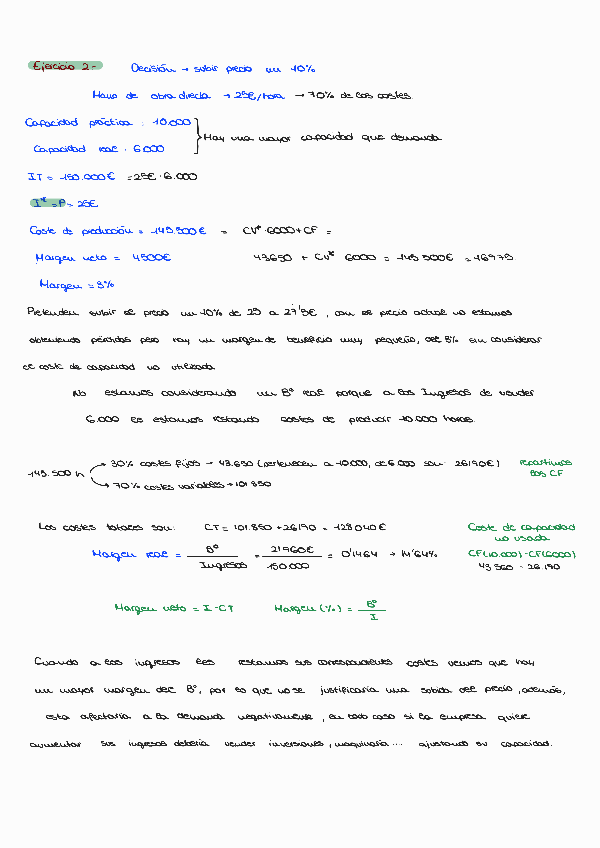 Ejercicio 2.- Decisión → subir precio un 10%
Mano de obra directa → 25€/hora → 70% de los costes
Capacidad práctica : 10.000
Hay una mayor capacidad que demanda
Capacidad real : 6.000
IT = 150.000€ = 25€ · 6.000
= P = 25€
Coste de producción = 145.500€ = CV* · 6000 + CF =
Margen neto = 4500€ 43650 + CV* 6000 = 145.500€ = 16'975
Margen = 3%
Pretenden subir el precio un 10% de 25 a 27'5€, con el precio actual no estamos
obteniendo pérdidas pero hay un margen de beneficio muy pequeño, del 3% sin considerar
el coste de capacidad no utilizada
No estamos considerando un Bº real porque a los Ingresos de vender
6.000 le estamos restando costes de producir 10.000 horas.
145.500 h → 30% costes fijos → 43.650 (pertenecen a 10.000, de 6.000 son 26190€) repartimos los CF
→ 70% costes variables → 101.850
Los costes totales son: CT = 101.850 + 26190 = 128040€ Coste de capacidad no usada
Margen real = Bº / Ingresos = 21960€ / 150.000 = 0'1464 → 14'64% CF(10.000) - CF(6000)
43.560 - 26.190
Margen neto = I - CT Margen (%) = Bº / I
Cuando a los ingresos les restamos sus correspondientes costes vemos que hay
un mayor margen del Bº, por lo que no se justificaría una subida del precio, además,
esta afectaría a la demanda negativamente, en todo caso si la empresa quiere
aumentar sus ingresos debería vender inversiones, maquinaria... ajustando su capacidad.